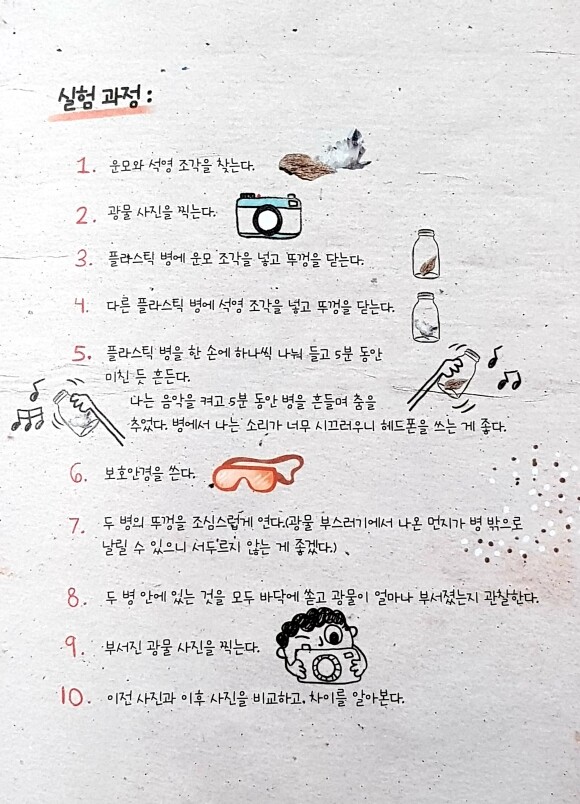 실험 과정 :
1. 운모와 석영 조각을 찾는다.
2. 광물 사진을 찍는다.
3. 플라스틱 병에 운모 조각을 넣고 뚜껑을 닫는다.
4. 다른 플라스틱 병에 석영 조각을 넣고 뚜껑을 닫는다.
5. 플라스틱 병을 한 손에 하나씩 나눠 들고 5분 동안
미친 듯 흔든다.
나는 음악을 켜고 5분 동안 병을 흔들며 춤을
추었다. 병에서 나는 소리가 너무 시끄러우니 헤드폰을 쓰는 게 좋다.
6. 보호안경을 쓴다.
7. 두 병의 뚜껑을 조심스럽게 연다.(광물 부스러기에서 나온 먼지가 병 밖으로
날릴 수 있으니 서두르지 않는 게 좋겠다.)
8. 두 병 안에 있는 것을 모두 바닥에 쏟고 광물이 얼마나 부서졌는지 관찰한다.
9. 부서진 광물 사진을 찍는다.
10. 이전 사진과 이후 사진을 비교하고, 차이를 알아본다.